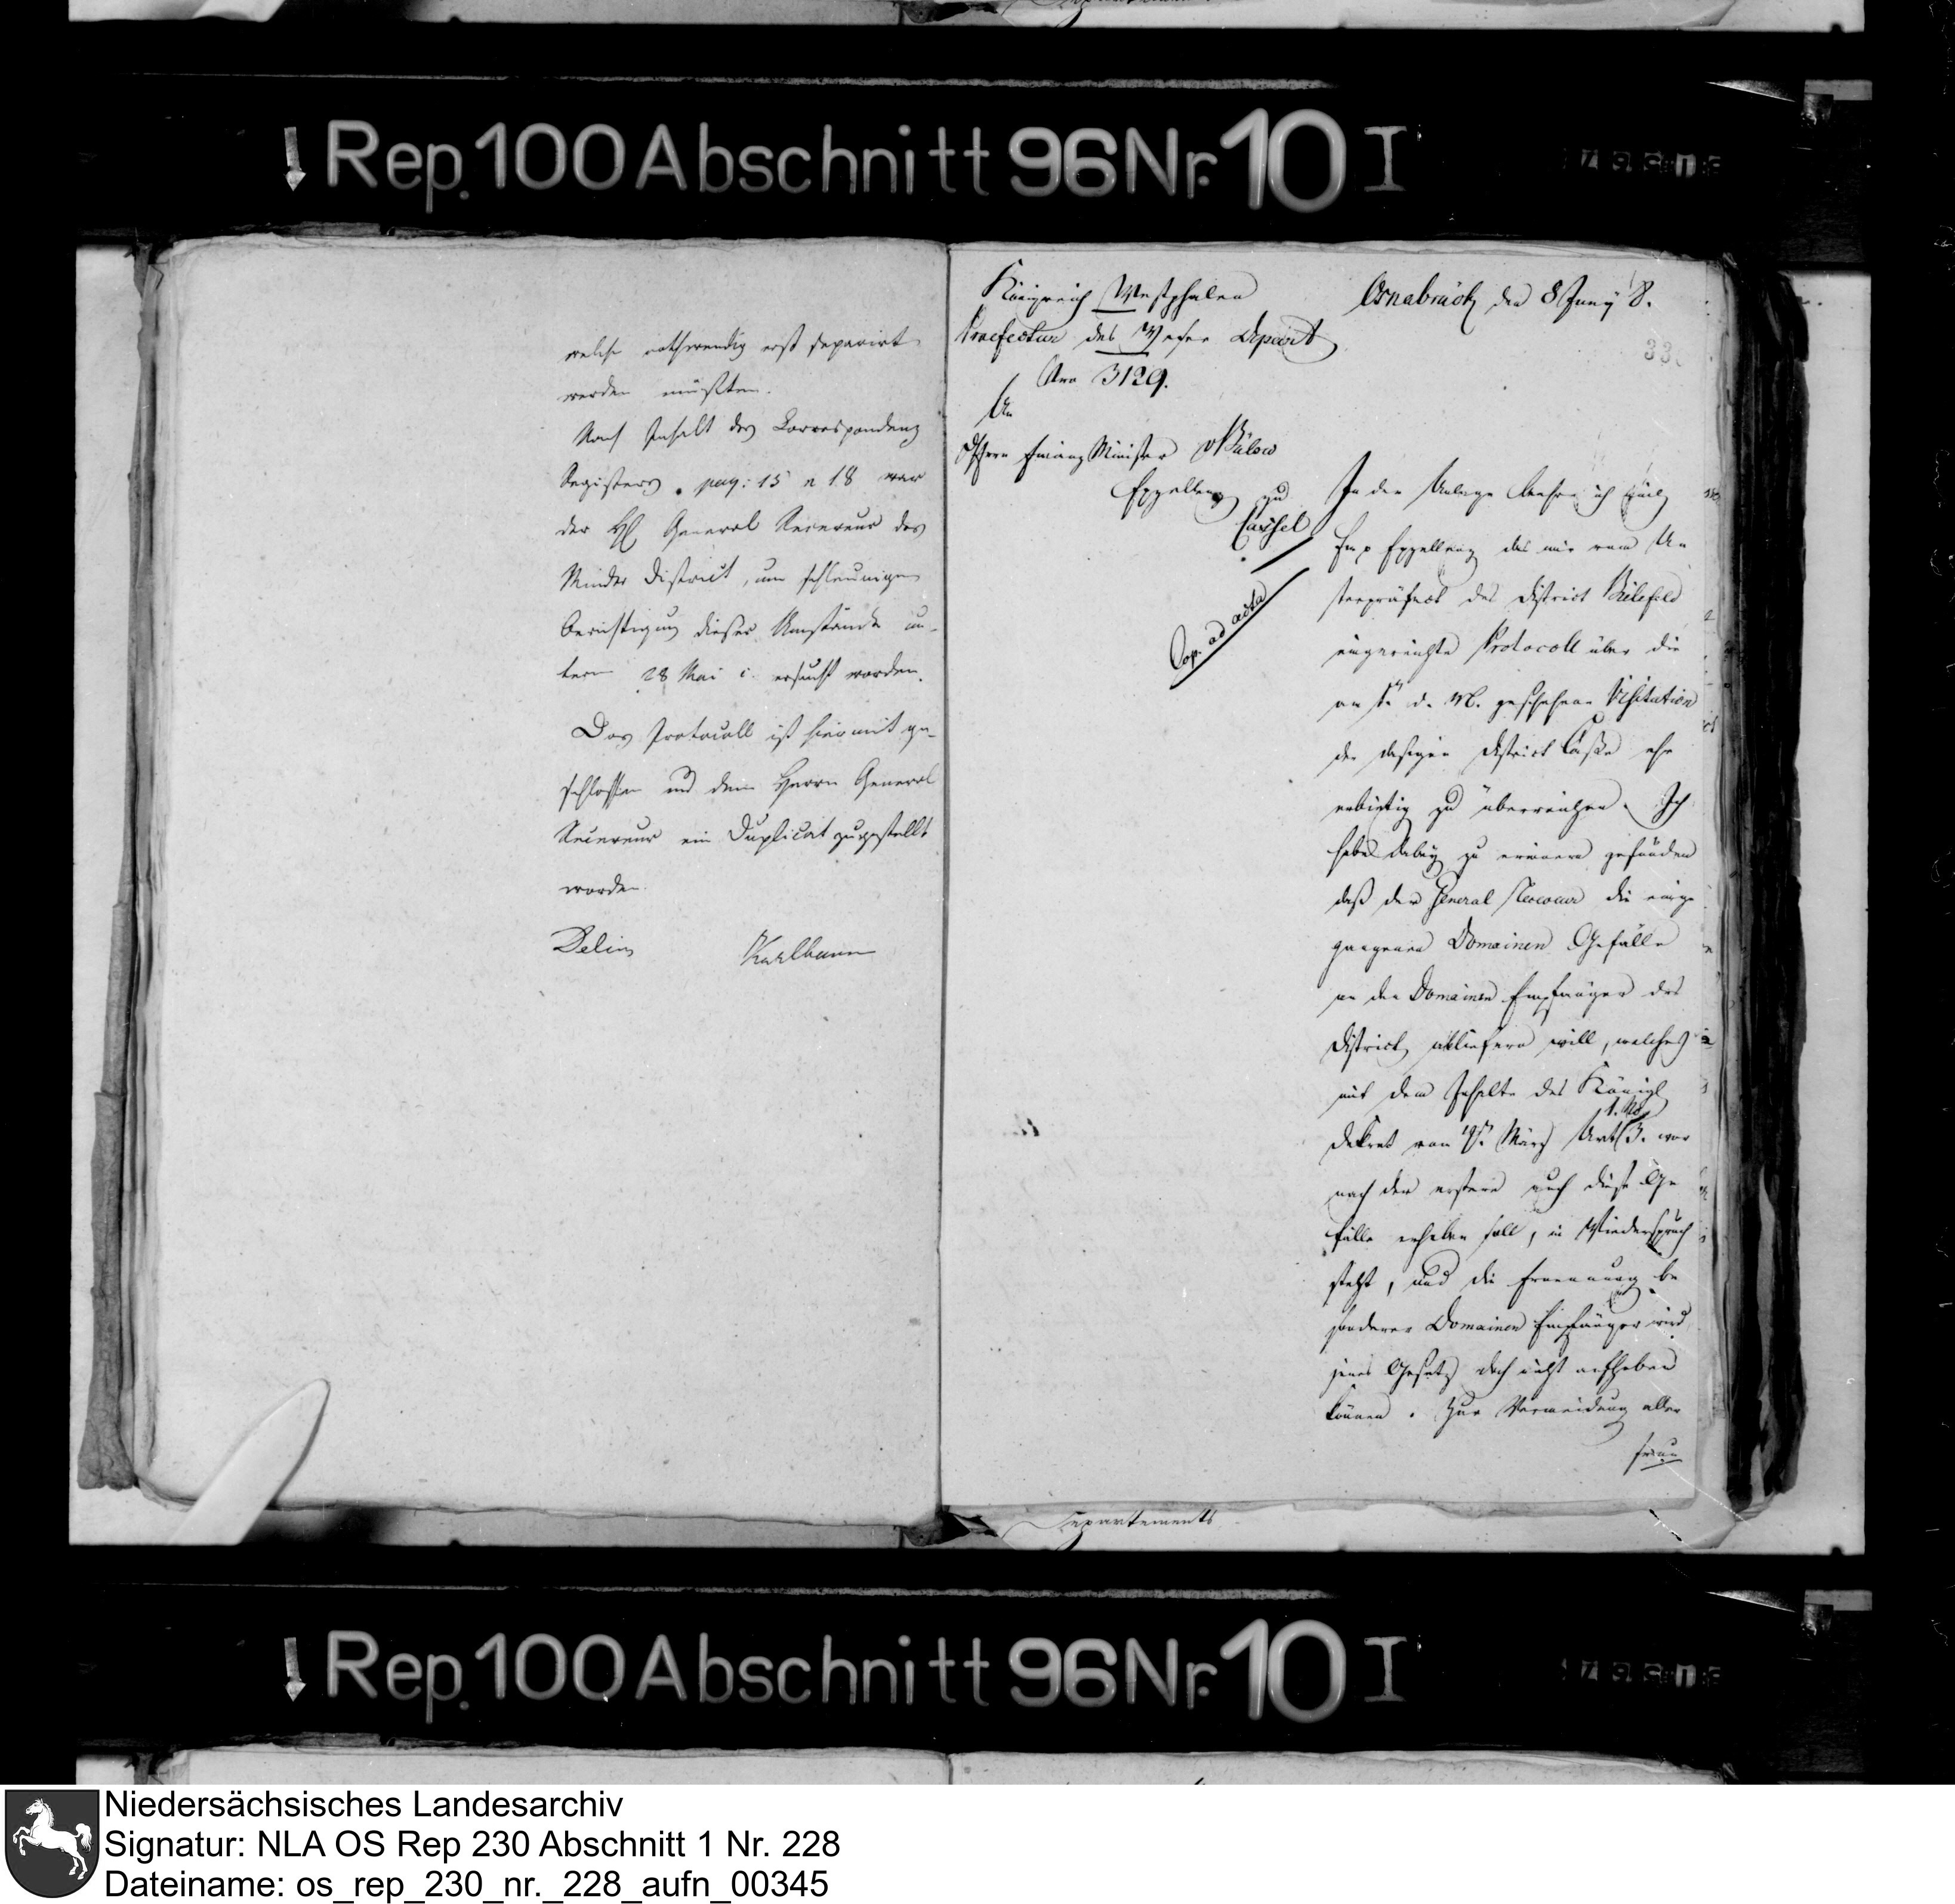 Rep. 100 Abschnitt 96 Nr. 10 I
welche nothwendig erst separirt
werden müßten.
Nach Inhalt des Correspondenz
Registers pag: 15 u 18 war
der H General Receveur des
Minder District, um schleunige
Berichtigung dieser Umstände un-
term 28 Mai c. ersucht worden.
Das Protocoll ist hiermit ge-
schlossen und dem Herrn General
Receveur ein Duplicat zugestellt
worden.
Delius
Königreich Westphalen
Praefectur des Weser Depart
Nro 3129.
An
Herrn Finanz Minister v Bülow
Excellenz zu
Cassel
Cop. ad acta
Osnabrück den 8 Juny 8.
33
In der Anlage beehre ich
Excellenz das mir vom Un
terpräfect des District Bielefeld
eingereichte Protocoll über die
am d. M. geschehene Visitation
der dasigen District Casse ehr
erbietig zu überreichen. Ich
habe dabey zu erinnern gefunden
daß der General Receveur die einge
gangenen Domainen Gefälle
an den Domainen Empfänger des
District abliefern will, welches
mit dem Inhalte des Königl
Dekret vom März Art 3. wor
nach der erstere auch diese Ge
fälle erheben soll, in Wiederspruch
steht, und die Ernennung be
sonderer Domainen Empfänger wird
jenes Gesetz doch nicht aufheben
können. Zur Vermeidung aller
Departements
Rep. 100 Abschnitt 96 Nr. 10 I
Niedersächsisches Landesarchiv
Signatur: NLA OS Rep 230 Abschnitt 1 Nr. 228
Dateiname: os_rep_230_nr._228_aufn_00345